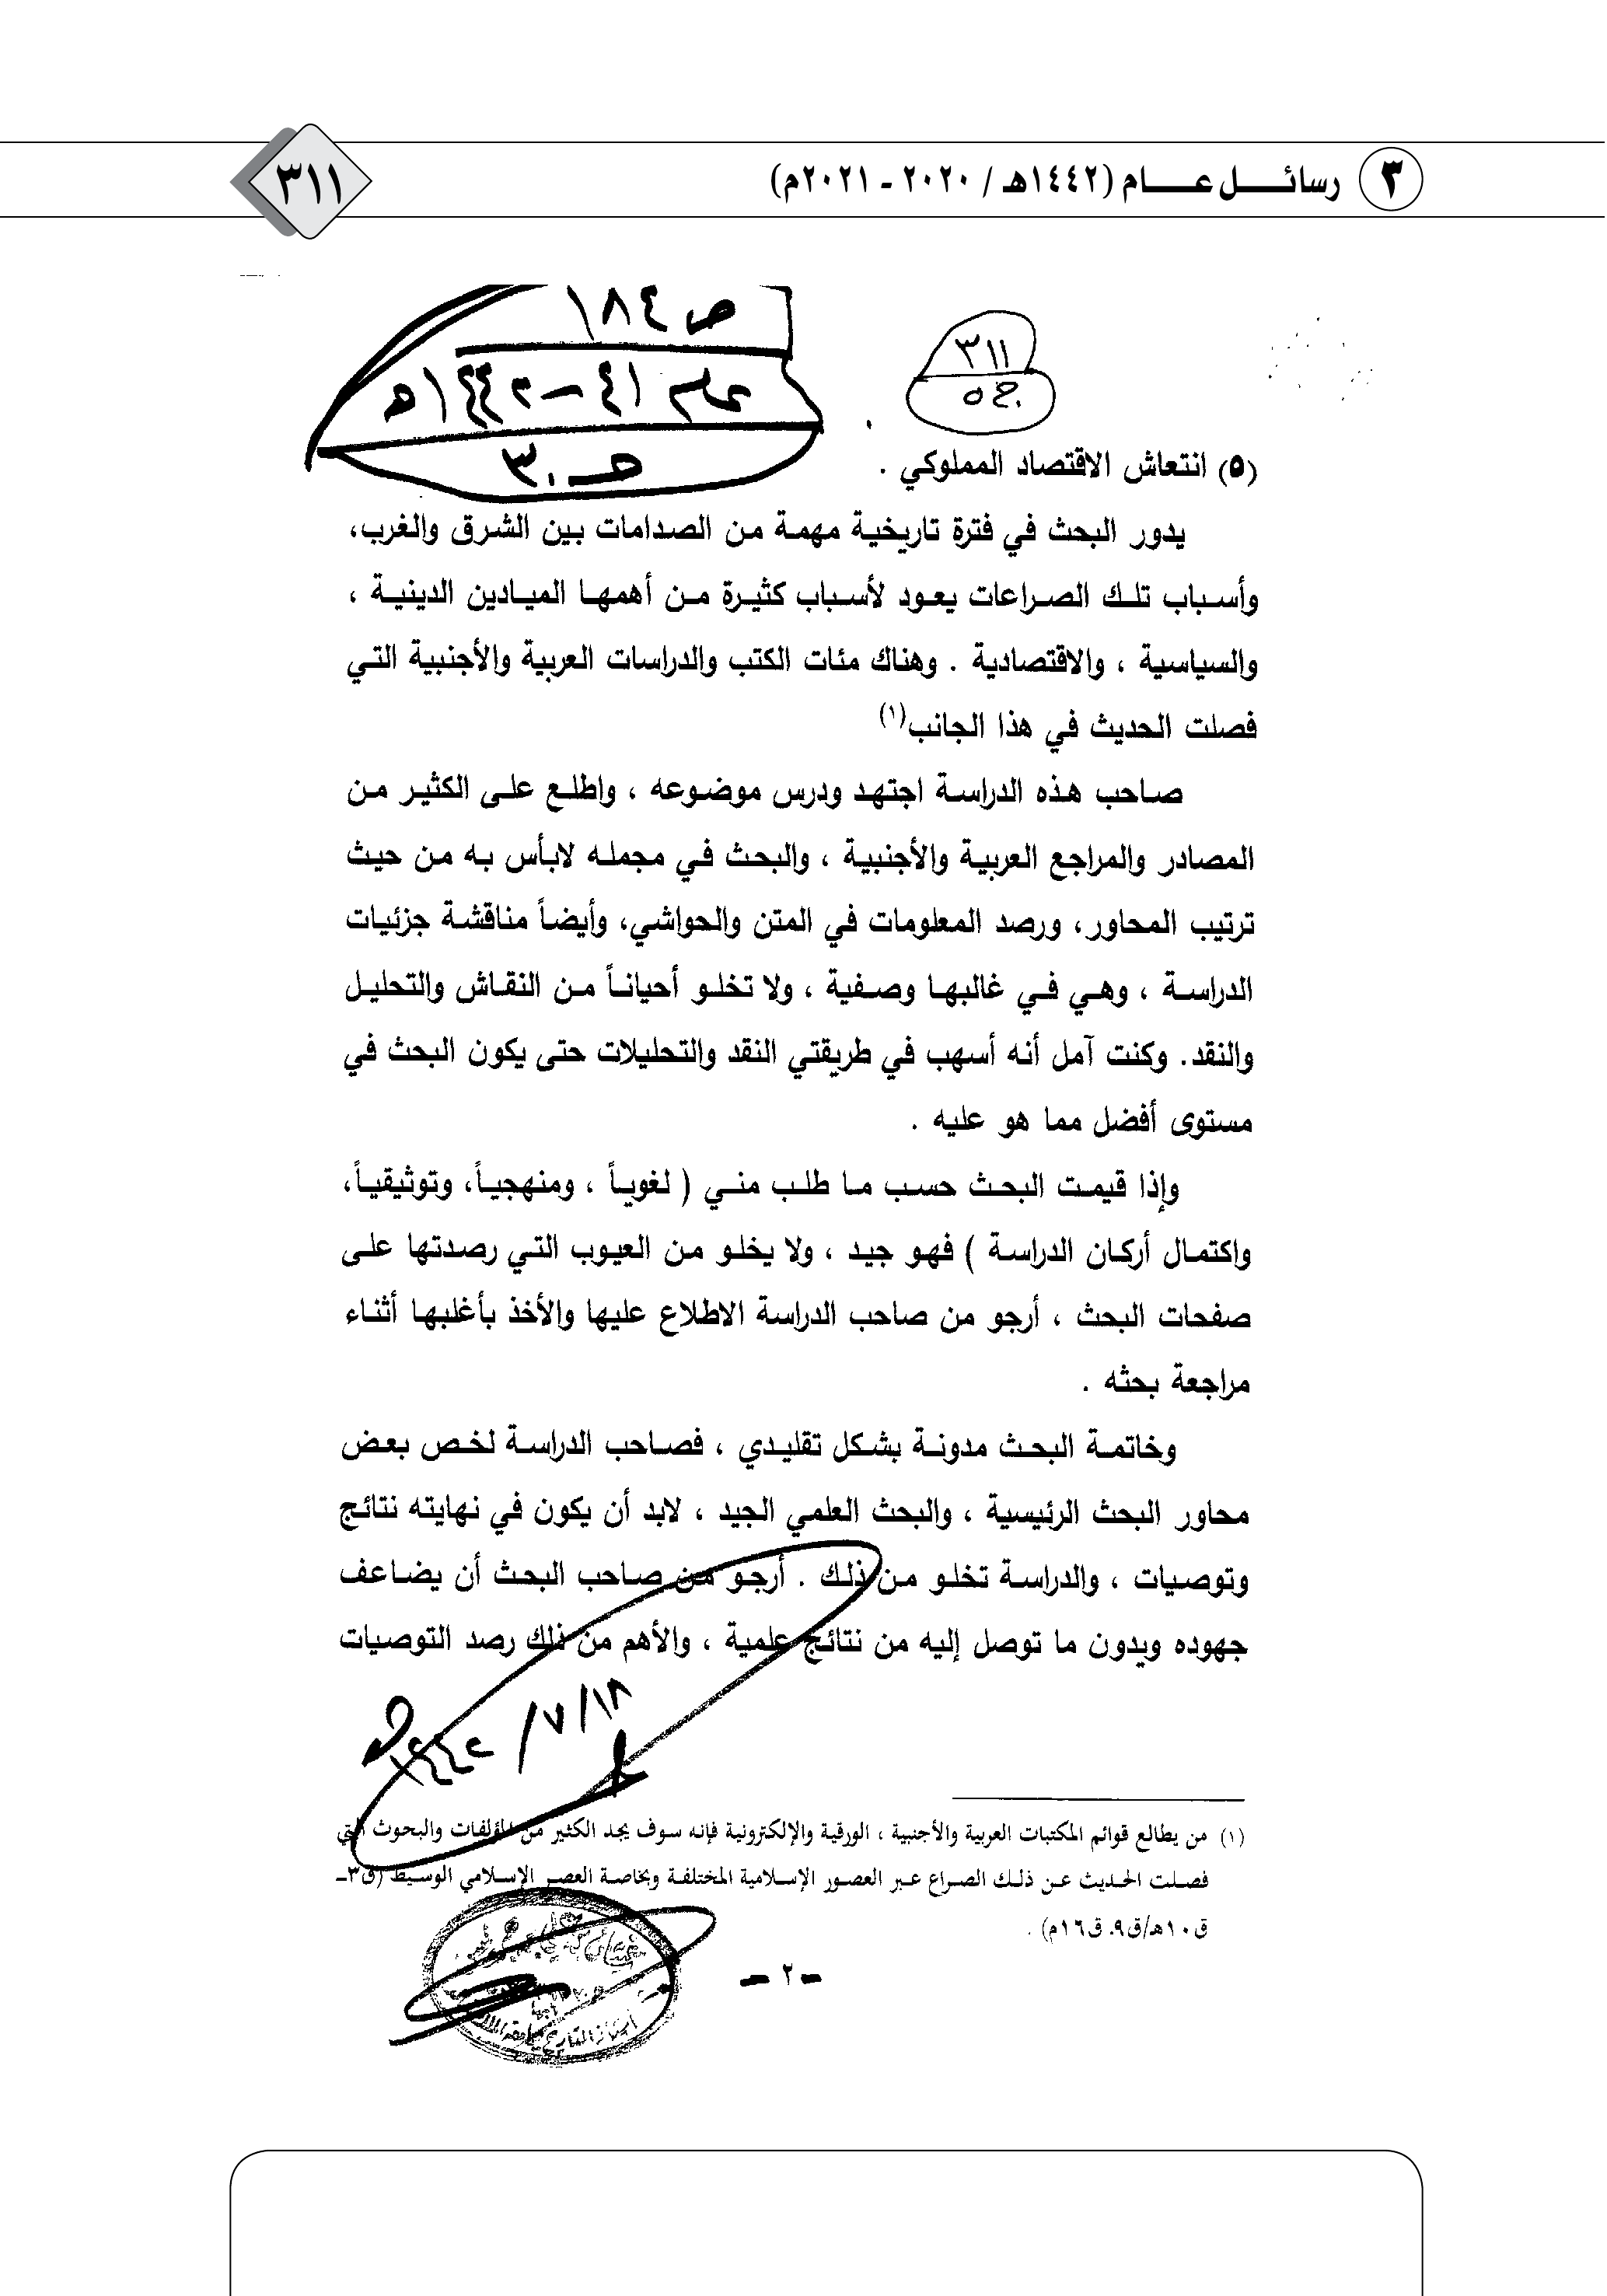 ٣ رسائـــــل عـــــام (١٤٤٢هـ / ٢٠٢٠ - ٢٠٢١م)
٣١١
ص ١٨٤
عام ٤١ – ١٤٤٢هـ
٣٠
٣١١
ج ٥
(٥) انتعاش الاقتصاد المملوكي .
يدور البحث في فترة تاريخية مهمة من الصدامات بين الشرق والغرب،
وأسباب تلك الصراعات يعود لأسباب كثيرة من أهمها الميادين الدينية ،
والسياسية ، والاقتصادية . وهناك مئات الكتب والدراسات العربية والأجنبية التي
فصلت الحديث في هذا الجانب(١)
صاحب هذه الدراسة اجتهد ودرس موضوعه ، واطلع على الكثير من
المصادر والمراجع العربية والأجنبية ، والبحث في مجمله لابأس به من حيث
ترتيب المحاور، ورصد المعلومات في المتن والحواشي، وأيضاً مناقشة جزئيات
الدراسة ، وهي في غالبها وصفية ، ولا تخلو أحياناً من النقاش والتحليل
والنقد. وكنت آمل أنه أسهب في طريقتي النقد والتحليلات حتى يكون البحث في
مستوى أفضل مما هو عليه .
وإذا قيمت البحث حسب ما طلب مني ( لغوياً ، ومنهجياً، وتوثيقياً،
واكتمال أركان الدراسة ) فهو جيد ، ولا يخلو من العيوب التي رصدتها على
صفحات البحث ، أرجو من صاحب الدراسة الاطلاع عليها والأخذ بأغلبها أثناء
مراجعة بحثه .
وخاتمة البحث مدونة بشكل تقليدي ، فصاحب الدراسة لخص بعض
محاور البحث الرئيسية ، والبحث العلمي الجيد ، لابد أن يكون في نهايته نتائج
وتوصيات ، والدراسة تخلو من ذلك . أرجو من صاحب البحث أن يضاعف
جهوده ويدون ما توصل إليه من نتائج علمية ، والأهم من ذلك رصد التوصيات
(١) من يطالع قوائم المكتبات العربية والأجنبية ، الورقية والإلكترونية فإنه سوف يجد الكثير من المؤلفات والبحوث التي
فصلت الحديث عن ذلك الصراع عبر العصور الإسلامية المختلفة وبخاصة العصر الإسلامي الوسيط (ق٣ـ
ق١٠هـ/ق٩ـ ق١٦م) .
- ٢ -